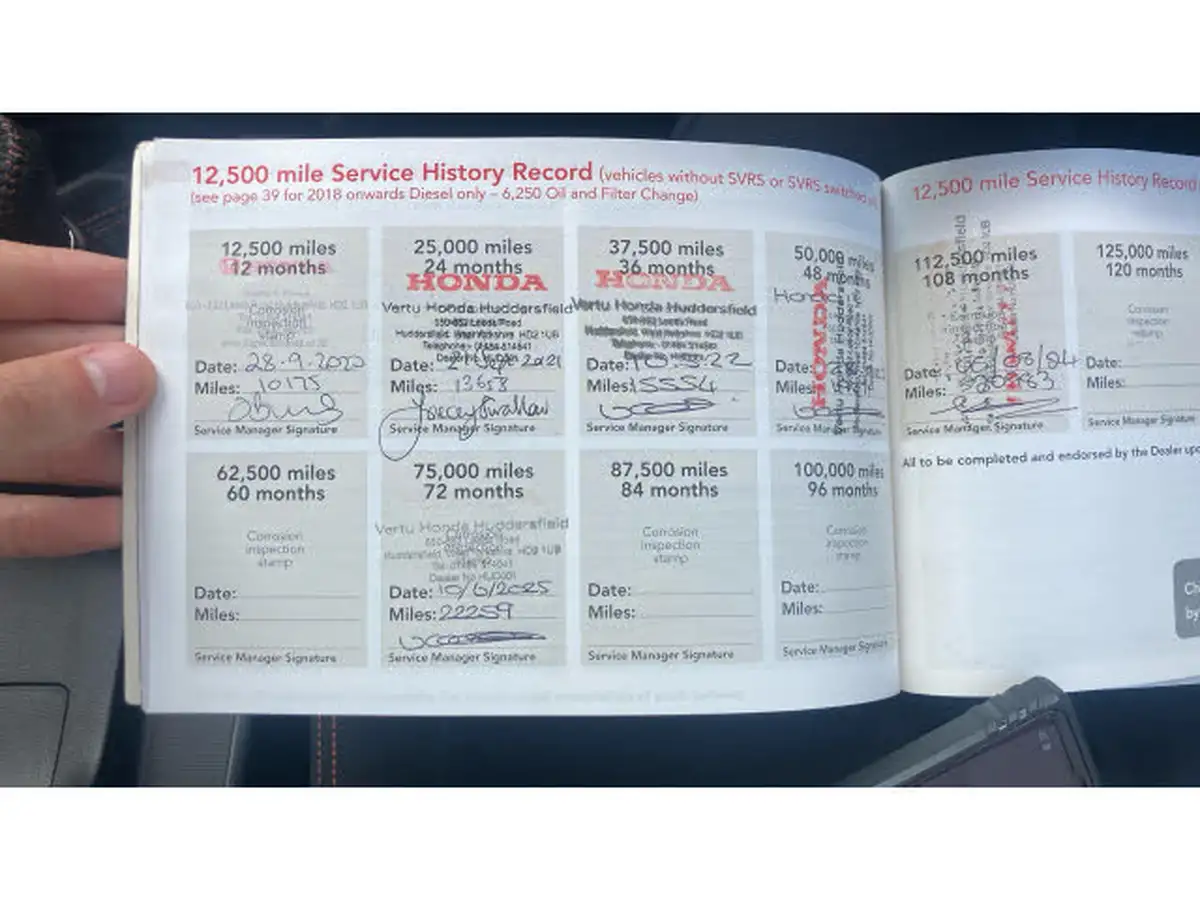 12,500 mile Service History Record (vehicles without SVRS or SVRS switched
(see page 39 for 2018 onwards Diesel only – 6,250 Oil and Filter Change)
12,500 miles
12 months
Corrosion
inspection
stamp
Date: 28-9-2020
Miles: 10175
Service Manager Signature
25,000 miles
24 months
HONDA
Vertu Honda Huddersfield
Leeds Road
Huddersfield, West Yorkshire HD2 1UB
Telephone - 01484 514641
Date: Sep 2021
Miles: 13653
Service Manager Signature
37,500 miles
36 months
HONDA
Vertu Honda Huddersfield
Leeds Road
Huddersfield, West Yorkshire HD2 1UB
Date: 22
Miles: 15554
Service Manager Signature
50,000 miles
48 months
HONDA
Date:
Miles:
Service Manager Signature
62,500 miles
60 months
Corrosion
inspection
stamp
Date:
Miles:
Service Manager Signature
75,000 miles
72 months
Vertu Honda Huddersfield
Huddersfield, West Yorkshire, HD2 1UB
Tel: 01484 514641
Dealer No HUD001
Date: 10/6/2025
Miles: 22259
Service Manager Signature
87,500 miles
84 months
Corrosion
inspection
stamp
Date:
Miles:
Service Manager Signature
100,000 miles
96 months
Corrosion
inspection
stamp
Date:
Miles:
Service Manager Signature
12,500 mile Service History Record
112,500 miles
108 months
Date:
Miles:
Service Manager Signature
125,000 miles
120 months
Corrosion
inspection
stamp
Date:
Miles:
Service Manager Signature
All to be completed and endorsed by the Dealer